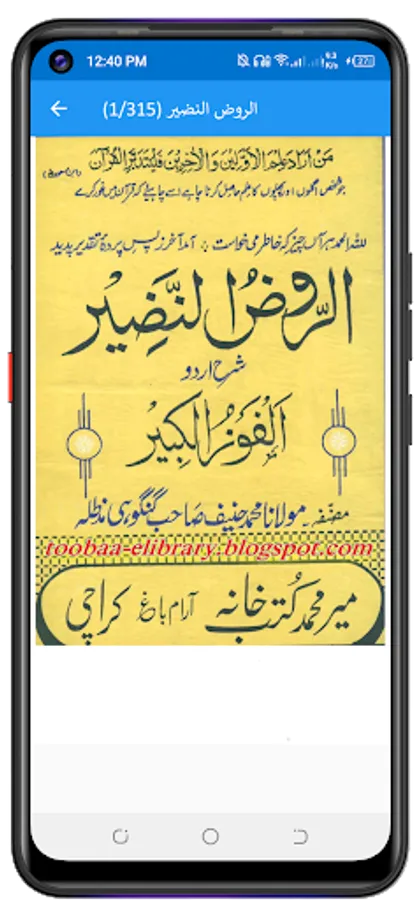 12:40 PM
9.3
K/s
27
الروض النضير (1/315)
من اراد علم الاولين والآخرین فلیتدبر القرآن
جو شخص اگلوں اور پچھلوں کا علم حاصل کرنا چاہے اسے چاہئے کہ قرآن میں غور کرے
للہ الحمد ہر آں چیز کہ خاطر می خواست ؞ آمد آخر ز پس پردۂ تقدیر پدید
الرَّوضُ النَّضِير
شرح اردو
اَلْفَوْزُ الْكَبِيْر
مصنفہ مولانا محمد حنیف صاحب گنگوہی مدظلہ
toobaa-elibrary.blogspot.com
میر محمد کتب خانہ آرام باغ کراچی